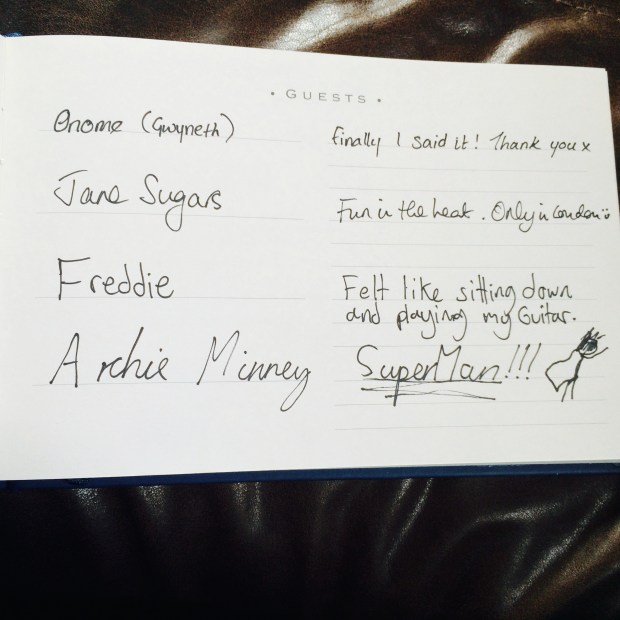 • GUESTS •
Gnome (Gwyneth)
Finally I said it! Thank you x
Jane Sugars
Fun in the heat. Only in London
Freddie
Felt like sitting down
and playing my Guitar.
Archie Minney
SuperMan!!!